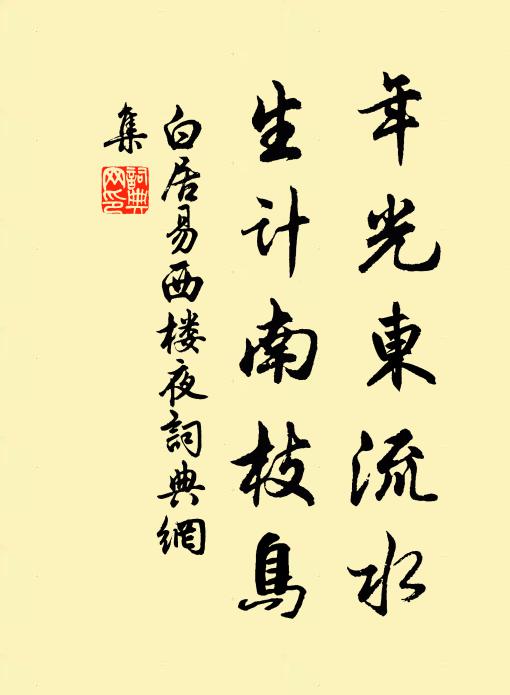 年光東流水
生计南枝鳥
白居易西楼夜詞典網
集
詞典网印